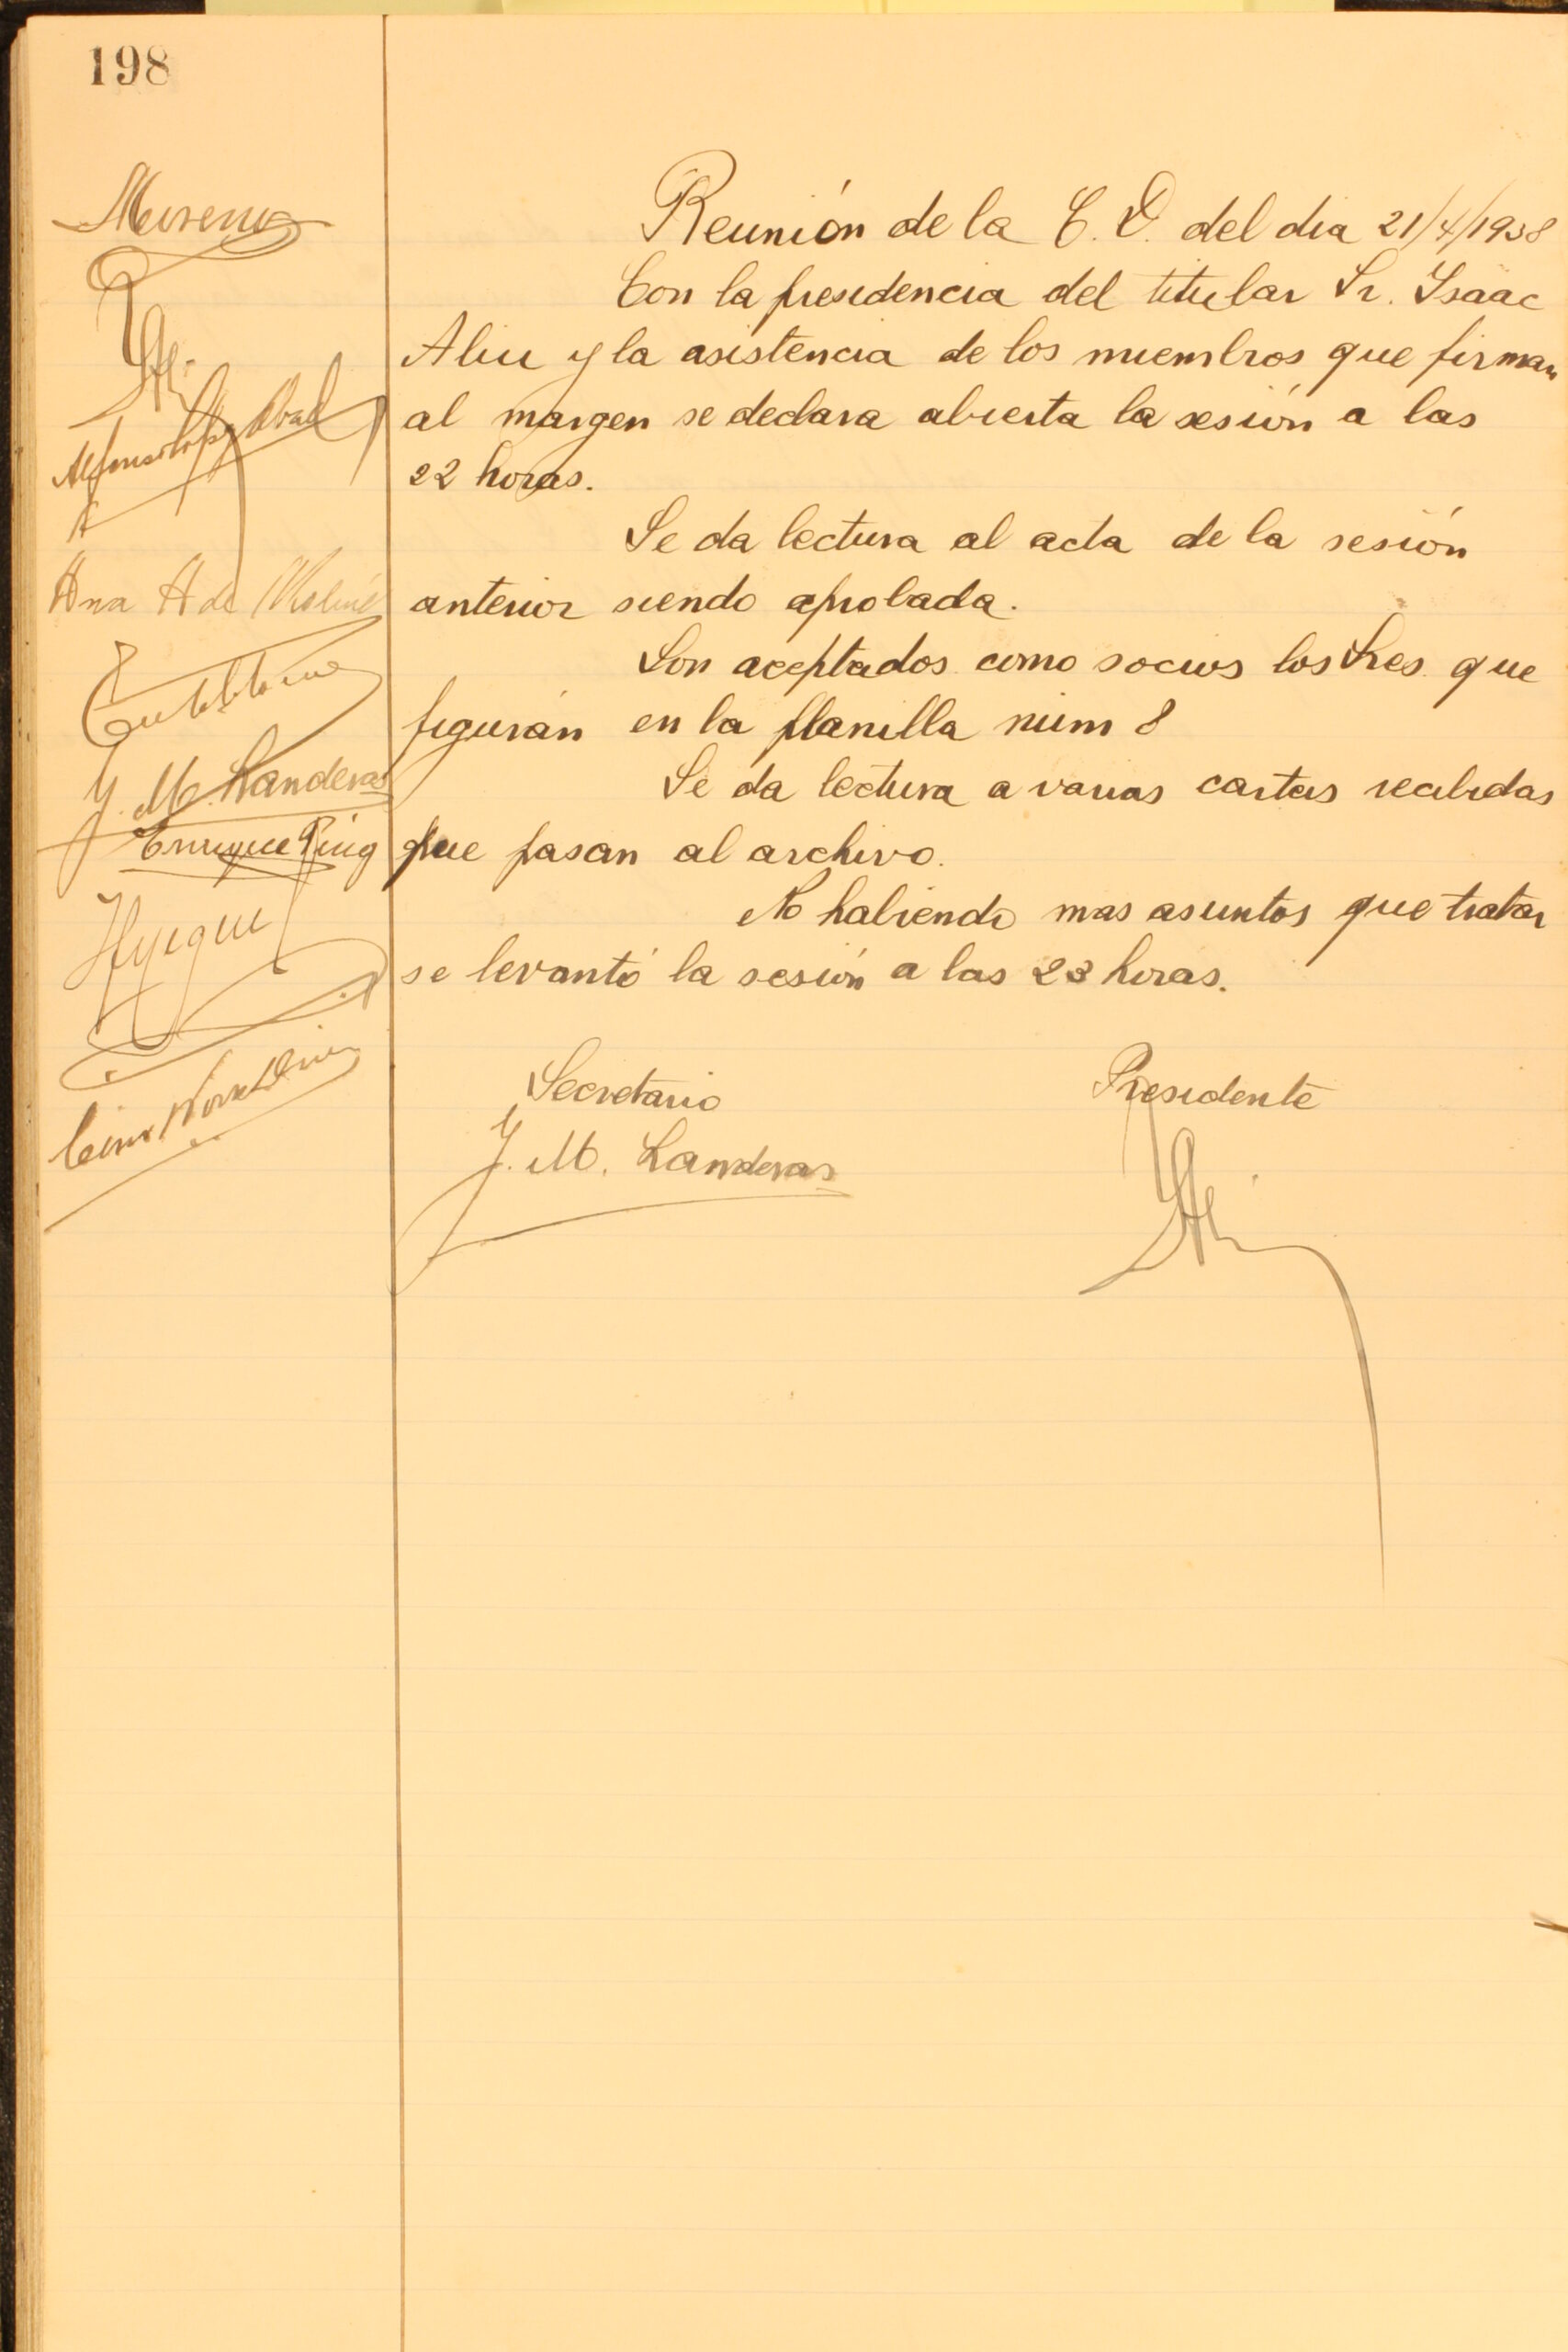 198
Moreno
Ana A de
J. M. Landeras
Enrique Puig
Reunión de la C. D. del dia 21/4/1938
Con la presidencia del titular Sr. Isaac
Aliu y la asistencia de los miembros que firman
al margen se declara abierta la sesión a las
22 horas.
Se da lectura al acta de la sesión
anterior siendo aprobada.
Son aceptados como socios los Sres que
figurán en la planilla núm 8
Se da lectura a varias cartas recibidas
que pasan al archivo.
No habiendo mas asuntos que tratar
se levantó la sesión a las 23 horas.
Secretario
Presidente
J. M. Landeras